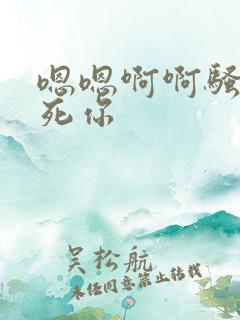 嗯嗯啊啊骚
死你
吴松航
未经同意禁止转载